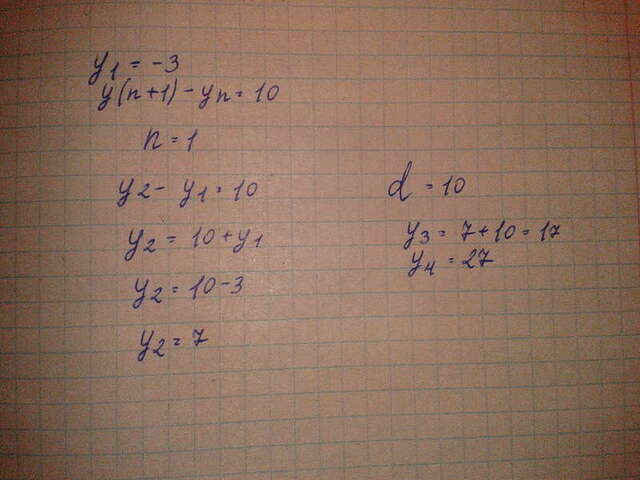 y1 = -3
y(n+1) - yn = 10
n = 1
y2 - y1 = 10
y2 = 10 + y1
y2 = 10 - 3
y2 = 7
d = 10
y3 = 7 + 10 = 17
y4 = 27